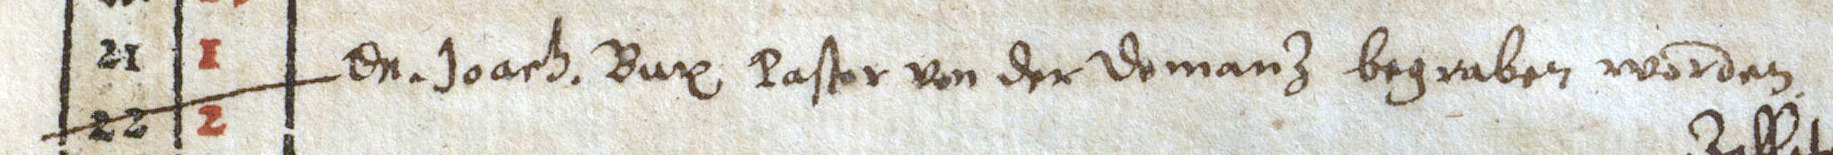 21 1 Dn. Joach. Bux Pastor von der Domanz begraben worden.
22 2